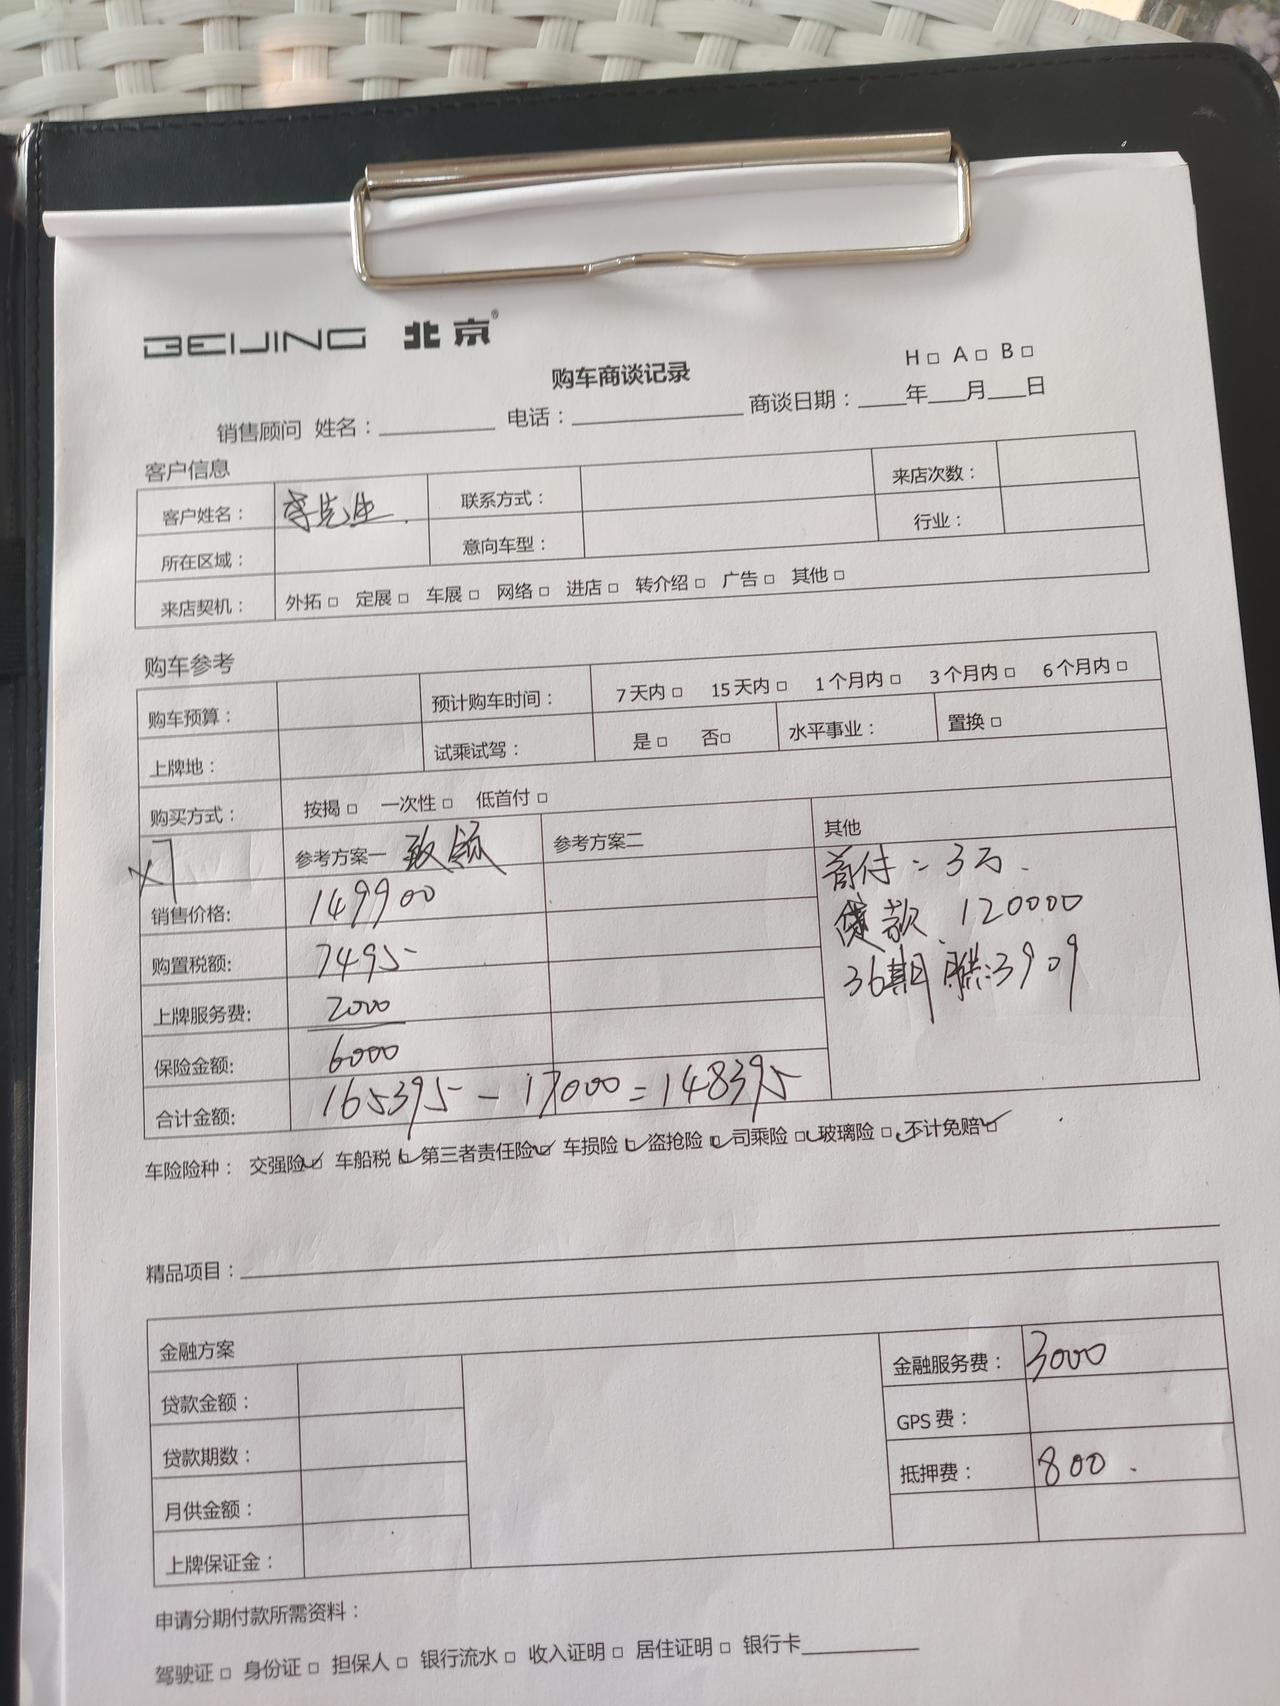 BEIJING 北京®
H□ A□ B□
购车商谈记录
销售顾问 姓名：______ 电话：______ 商谈日期：____年___月___日
客户信息
客户姓名： 李先生. 联系方式： 来店次数：
所在区域： 意向车型： 行业：
来店契机： 外拓□ 定展□ 车展□ 网络□ 进店□ 转介绍□ 广告□ 其他□
购车参考
购车预算： 预计购车时间： 7天内□ 15天内□ 1个月内□ 3个月内□ 6个月内□
上牌地： 试乘试驾： 是□ 否□ 水平事业： 置换□
购买方式： 按揭□ 一次性□ 低首付□
X7 参考方案一 致领 参考方案二 其他
销售价格: 149900
购置税额: 7495
上牌服务费: 2000
保险金额: 6000
合计金额: 165395 - 17000 = 148395
首付：3万.
贷款 120000
36期 月供:3909
车险险种： 交强险☑ 车船税☑ 第三者责任险☑ 车损险☑ 盗抢险☑ 司乘险☑ 玻璃险☑ 不计免赔☑
精品项目：
金融方案
贷款金额： 金融服务费： 3000
贷款期数： GPS费：
月供金额： 抵押费： 800.
上牌保证金：
申请分期付款所需资料：
驾驶证□ 身份证□ 担保人□ 银行流水□ 收入证明□ 居住证明□ 银行卡______